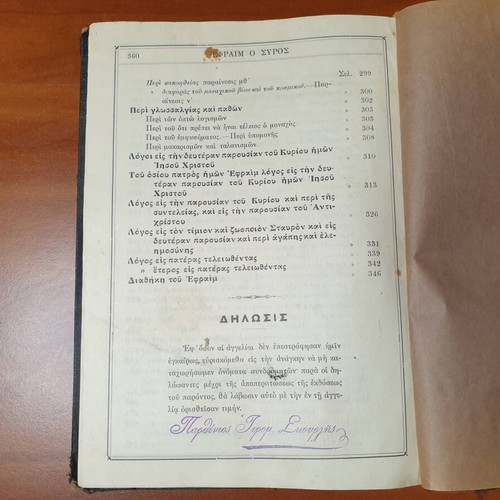 360 ΕΦΡΑΙΜ Ο ΣΥΡΟΣ
Σελ. 299
Περὶ κακοηθείας παραίνεσις μθʹ
» διαφορᾶς τοῦ μοναχικοῦ βίου καὶ τοῦ κοσμικοῦ.—Παραίνεσις νʹ » 300
Περὶ γλωσσαλγίας καὶ παθῶν » 302
Περὶ τῶν ὀκτὼ λογισμῶν » 303
Περὶ τοῦ ὅτι πρέπει νὰ ᾖναι τέλειος ὁ μοναχὸς » 303
Περὶ τοῦ ἐμφυσήματος.—Περὶ ὑπομονῆς » 304
Περὶ μακαρισμῶν καὶ ταλανισμῶν. » 308
Λόγοι εἰς τὴν δευτέραν παρουσίαν τοῦ Κυρίου ἡμῶν
Ἰησοῦ Χριστοῦ » 310
Τοῦ ὁσίου πατρὸς ἡμῶν Ἐφραὶμ λόγος εἰς τὴν δευτέραν
παρουσίαν τοῦ Κυρίου ἡμῶν Ἰησοῦ
Χριστοῦ » 313
Λόγος εἰς τὴν παρουσίαν τοῦ Κυρίου καὶ περὶ τῆς
συντελείας, καὶ εἰς τὴν παρουσίαν τοῦ Ἀντιχρίστου » 326
Λόγος εἰς τὸν τίμιον καὶ ζωοποιὸν Σταυρὸν καὶ εἰς
δευτέραν παρουσίαν καὶ περὶ ἀγάπης καὶ ἐλεημοσύνης » 331
Λόγος εἰς πατέρας τελειωθέντας » 339
» ἕτερος εἰς πατέρας τελειωθέντας » 342
Διαθήκη τοῦ Ἐφραὶμ » 346
ΔΗΛΩΣΙΣ
Ἐφ' ὅσον αἱ ἀγγελίαι δὲν ἐπεστράφησαν ἡμῖν
ἐγκαίρως, εὑρισκόμεθα εἰς τὴν ἀνάγκην νὰ μὴ καταχωρήσωμεν
ὀνόματα συνδρομητῶν· παρὰ οἱ δηλώσαντες
μέχρι τῆς ἀποπερατώσεως τῆς ἐκδόσεως
τοῦ παρόντος, θὰ λάβωσιν αὐτὸ μὲ τὴν ἐν τῇ ἀγγελίᾳ
ὁρισθεῖσαν τιμήν.
Παρθένιος Ἱερομ.